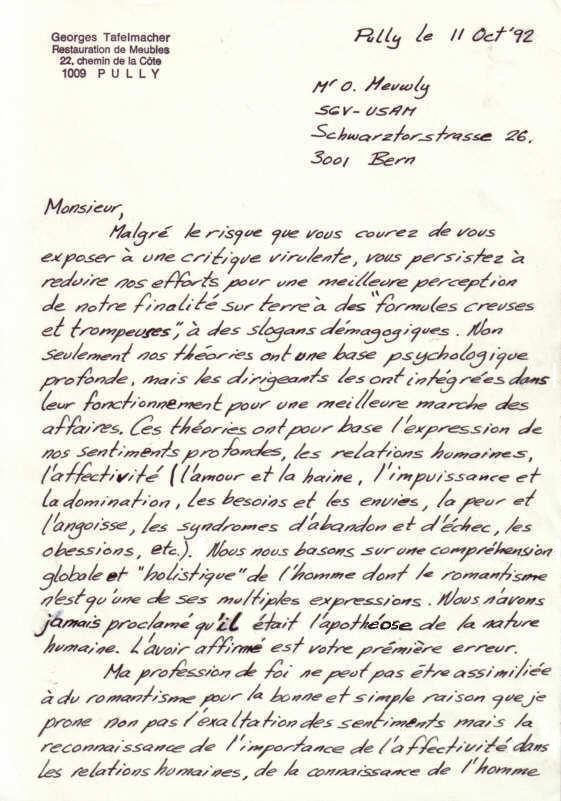 Georges Tafelmacher
Restauration de Meubles
22, chemin de la Côte
1009 PULLY
Pully le 11 Oct '92
Mr O. Meuwly
SGV-USAM
Schwarztorstrasse 26.
3001 Bern
Monsieur,
Malgré le risque que vous courez de vous
exposer à une critique virulente, vous persistez à
reduire nos efforts pour une meilleure perception
de notre finalité sur terre à des "formules creuses
et trompeuses", à des slogans démagogiques. Non
seulement nos théories ont une base psychologique
profonde, mais les dirigeants les ont intégrées dans
leur fonctionnement pour une meilleure marche des
affaires. Ces théories ont pour base l'expression de
nos sentiments profondes, les relations humaines,
l'affectivité (l'amour et la haine, l'impuissance et
la domination, les besoins et les envies, la peur et
l'angoisse, les syndromes d'abandon et d'échec, les
obessions, etc.). Nous nous basons sur une compréhension
globale et "holistique" de l'homme dont le romantisme
n'est qu'une de ses multiples expressions. Nous n'avons
jamais proclamé qu'il était l'apothéose de la nature
humaine. L'avoir affirmé est votre prémière erreur.
Ma profession de foi ne peut pas être assimiliée
à du romantisme pour la bonne et simple raison que je
prone non pas l'exaltation des sentiments mais la
reconnaissance de l'importance de l'affectivité dans
les relations humaines, de la connaissance de l'homme